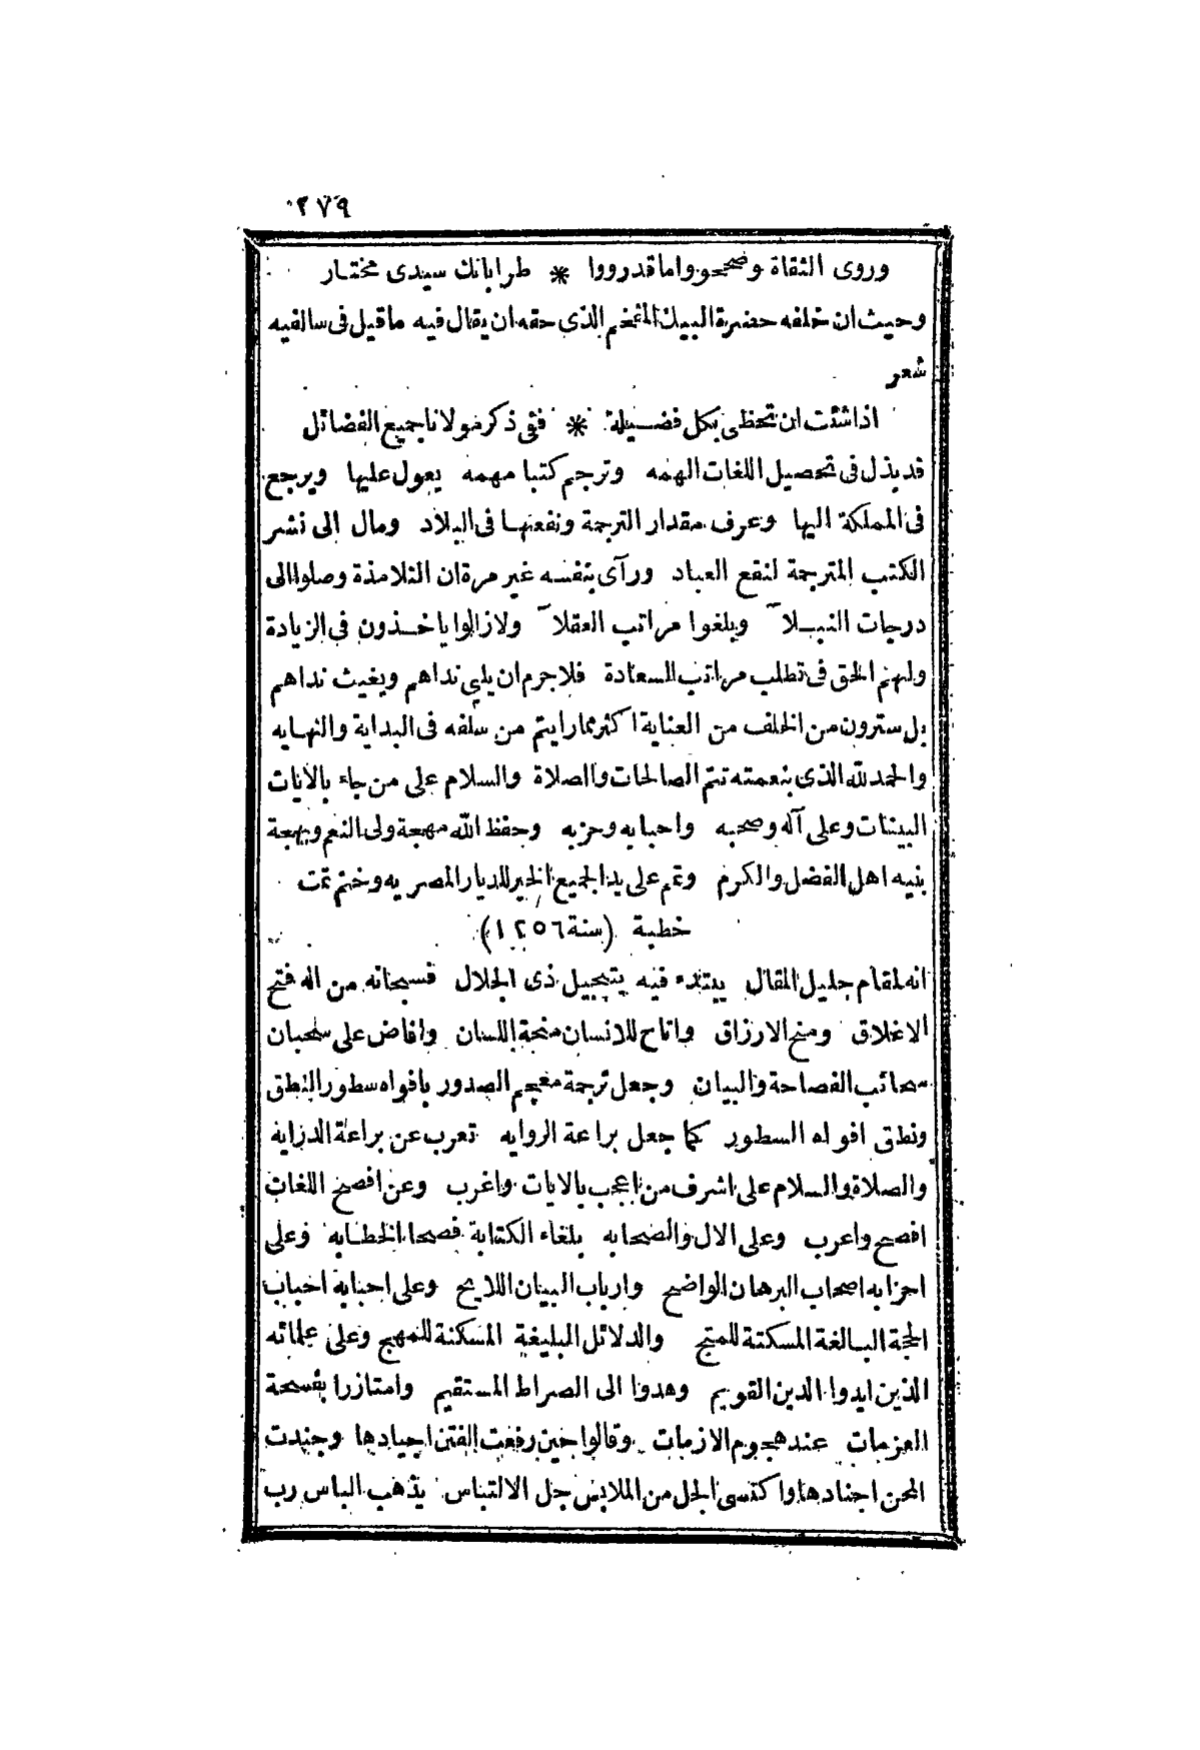 ٢٧٩
وروى الثقاة وصححوا واما قدرووا * طرا بانك سيدى مختار
وحيث ان خلفه حضرة البيك المفخم الذى حقه ان يقال فيه ما قيل فى سالفيه
شعر
اذا شئت ان تحظى بكل فضيلة * ففى ذكر مولانا جميع الفضائل
قد بذل فى تحصيل اللغات الهمه وترجم كتبا مهمه يعول عليها ويرجع
فى المملكة اليها وعرف مقدار الترجمة ونفعها فى البلاد ومال الى نشر
الكتب المترجمة لنفع العباد ورآى بنفسه غير مرة ان التلامذة وصلوا الى
درجات النبلآ وبلغوا مراتب العقلآ ولازالوا ياخذون فى الزيادة
ولهم الحق فى تطلب مراتب السعادة فلا جرم ان يلبى نداهم ويغيث نداهم
بل سترون من الخلف من العناية اكثر مما رايتم من سلفه فى البداية والنهايه
والحمد لله الذى بنعمته تتم الصالحات والصلاة والسلام على من جاء بالآيات
البينات وعلى آله وصحبه واحبابه وحزبه وحفظ الله مهجة ولى النعم وبهجة
بنيه اهل الفضل والكرم وتمم على يد الجميع الخير للديار المصريه وختم تمت
خطبة (سنة ١٢٥٦)
انه لمقام جليل المقال يبتدء فيه بتبجيل ذى الجلال فسبحانه من اله فتح
الاغلاق ومنح الارزاق واتاح للانسان منحة اللسان وافاض على سحبان
سحائب الفصاحة والبيان وجعل ترجمة معجم الصدور بافواه سطور النطق
ونطق افواه السطور كما جعل براعة الروايه تعرب عن براعة الدرايه
والصلاة والسلام على اشرف من اعجب بالايات واغرب وعن افصح اللغات
افصح واعرب وعلى الال والصحابه بلغاء الكتابة فصحا الخطابه وعلى
احزابه اصحاب البرهان الواضح وارباب البيان اللايح وعلى احبابه احباب
الحجة البالغة المسكتة للمبتج والدلائل البليغة المسكنة للمهيج وعلى علمائه
الذين ايدوا الدين القويم وهدوا الى الصراط المستقيم وامتازرا بفسحة
العزمات عند هجوم الازمات وقالوا حين رفعت الفتن اجيادها وجندت
المحن اجنادها واكتسى الجل من الملابس جل الالتباس يذهب الباس رب